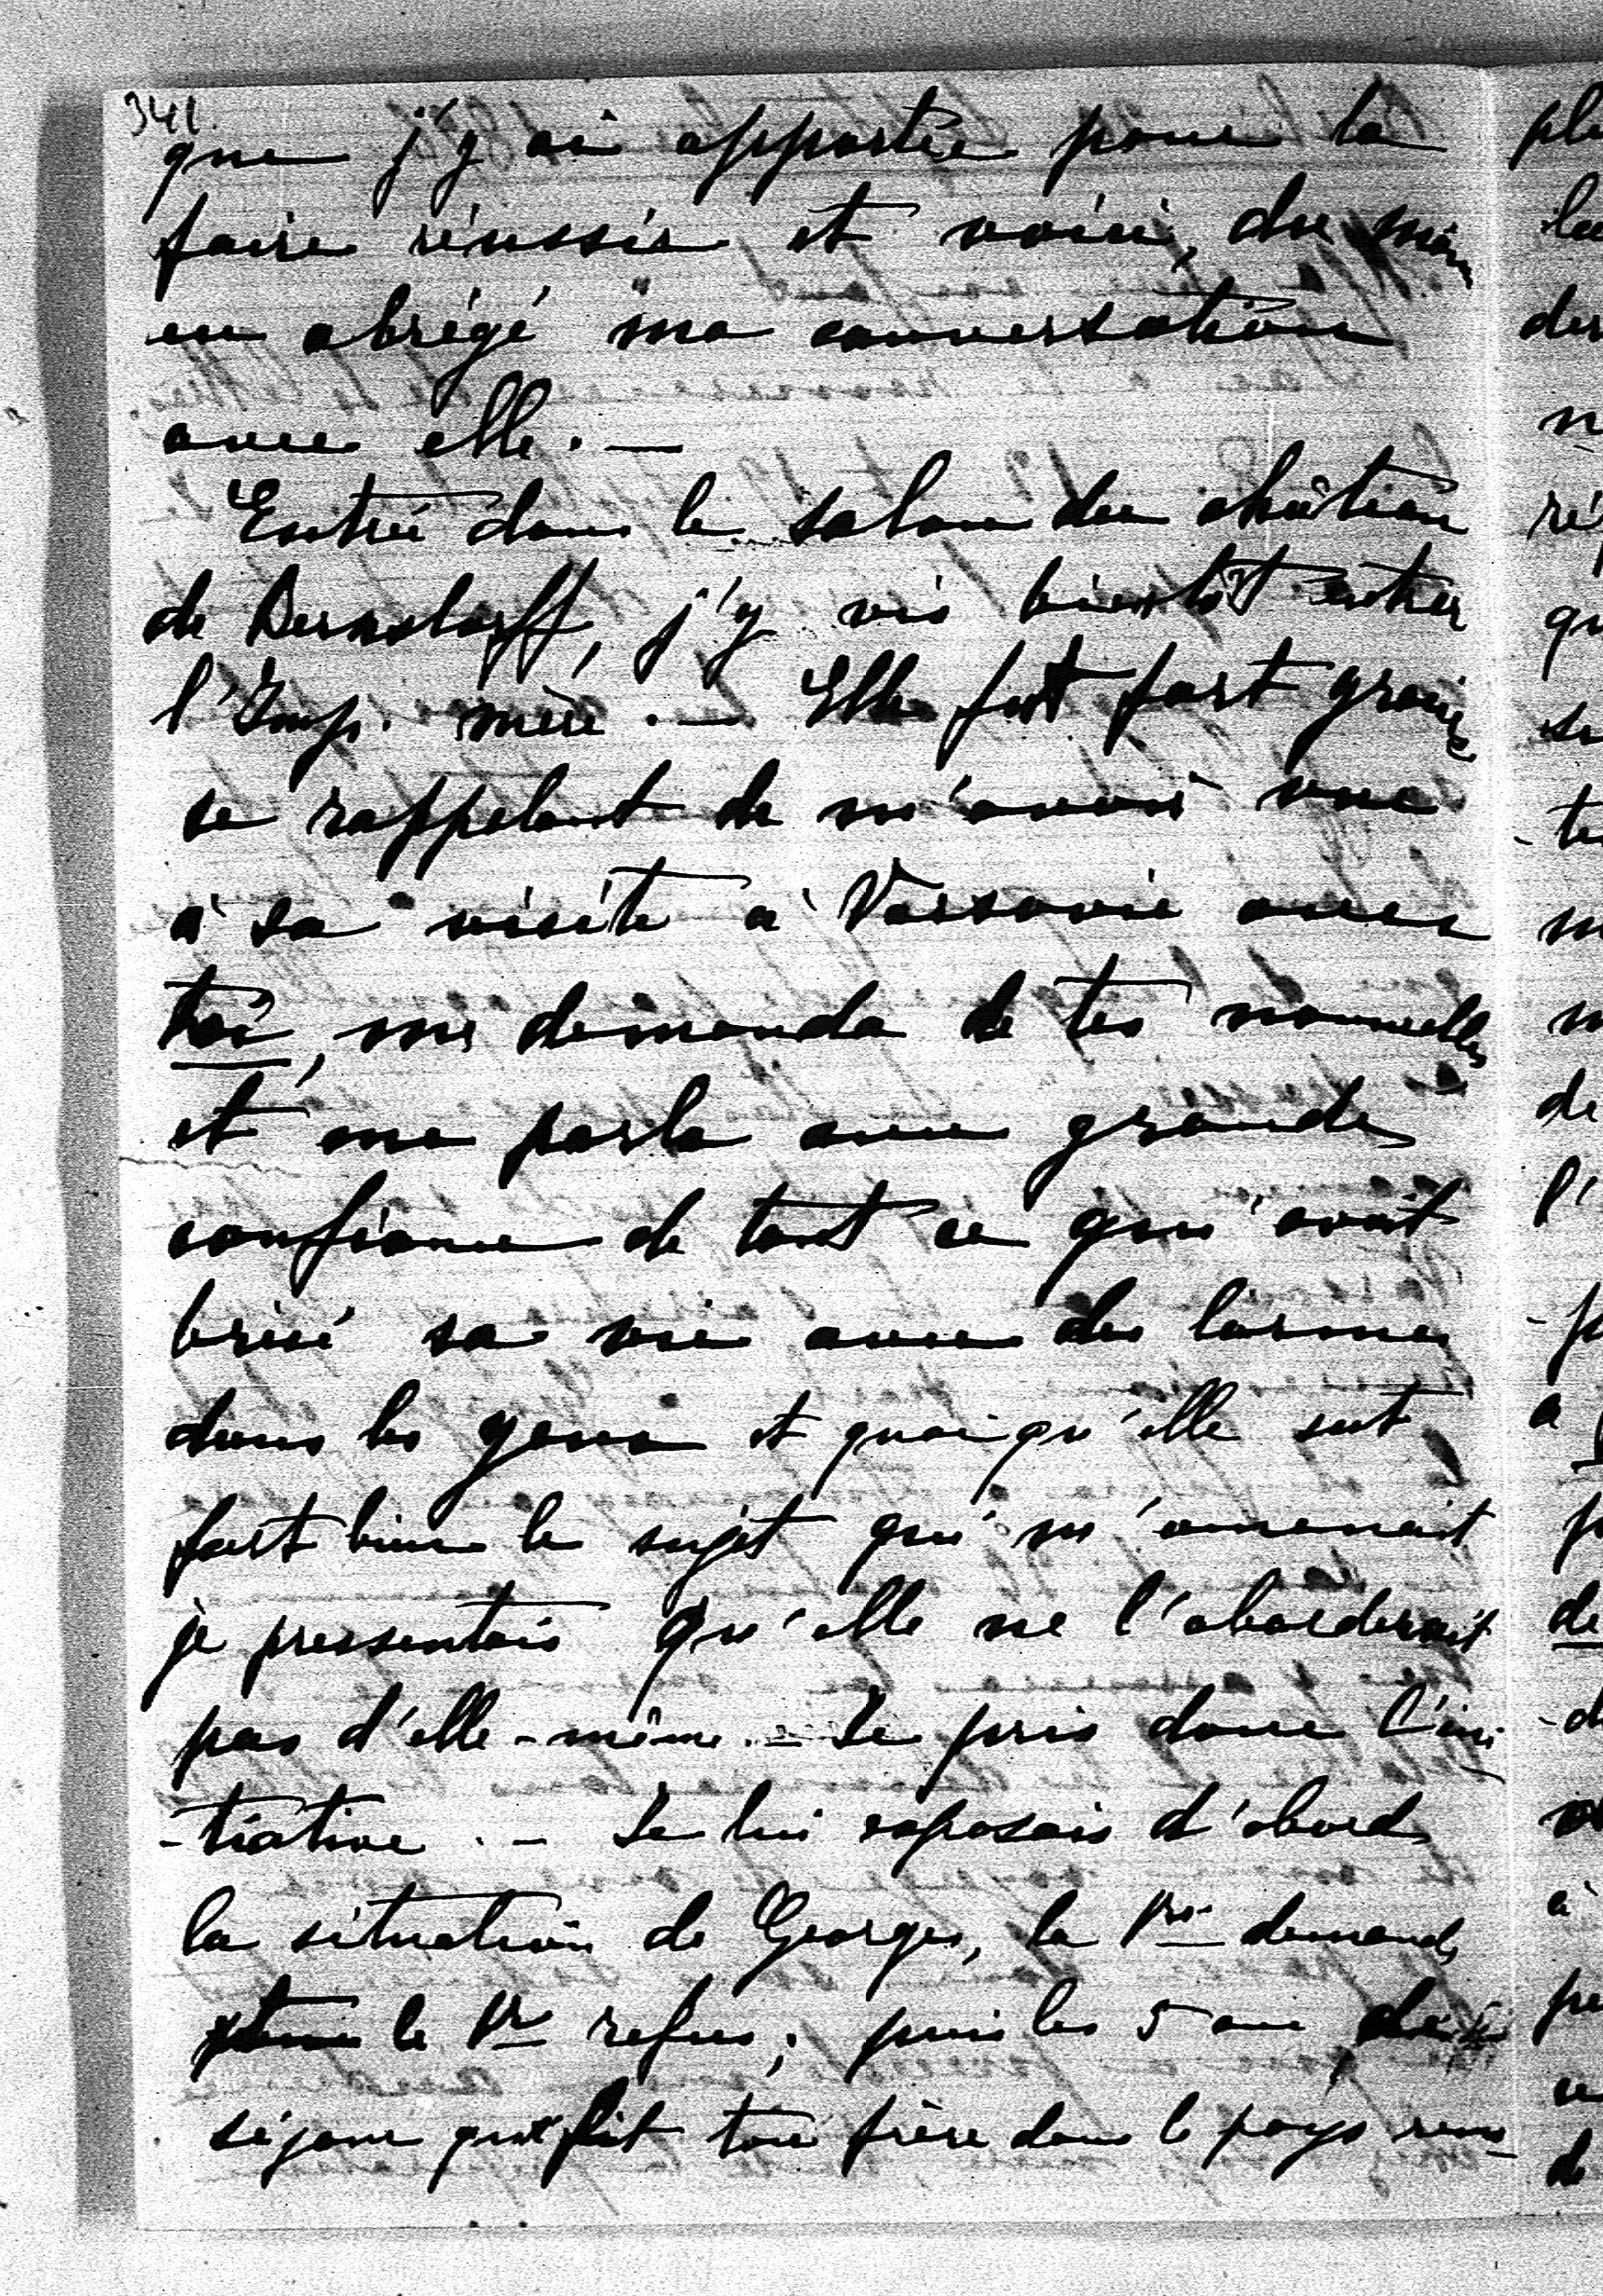 341.
que j'y ai apportée pour la
faire réussir et voici, du moin
en abrégé ma conversation
avec elle. —
Entrée dans le salon du château
de Bernstorff, j'y vis bientôt entrer
l'Imp. mère. — Elle fut fort gracie
se rappelant de m'avoir vue
à sa visite à Varsovie avec
toi, me demanda de tes nouvelles
et me parla avec grande
confiance de tout ce qui avait
brisé sa vie avec des larmes
dans les yeux et quoiqu'elle sut
fort bien le sujet qui m'amenait
je pressentais qu'elle ne l'aborderait
pas d'elle-même. — Je pris donc l'ini-
-tiative. — Je lui exposais d'abord
la situation de Georges, la 1re demande
le 1er refus; puis les 5 ans de
séjour que fit ton frère dans le pays